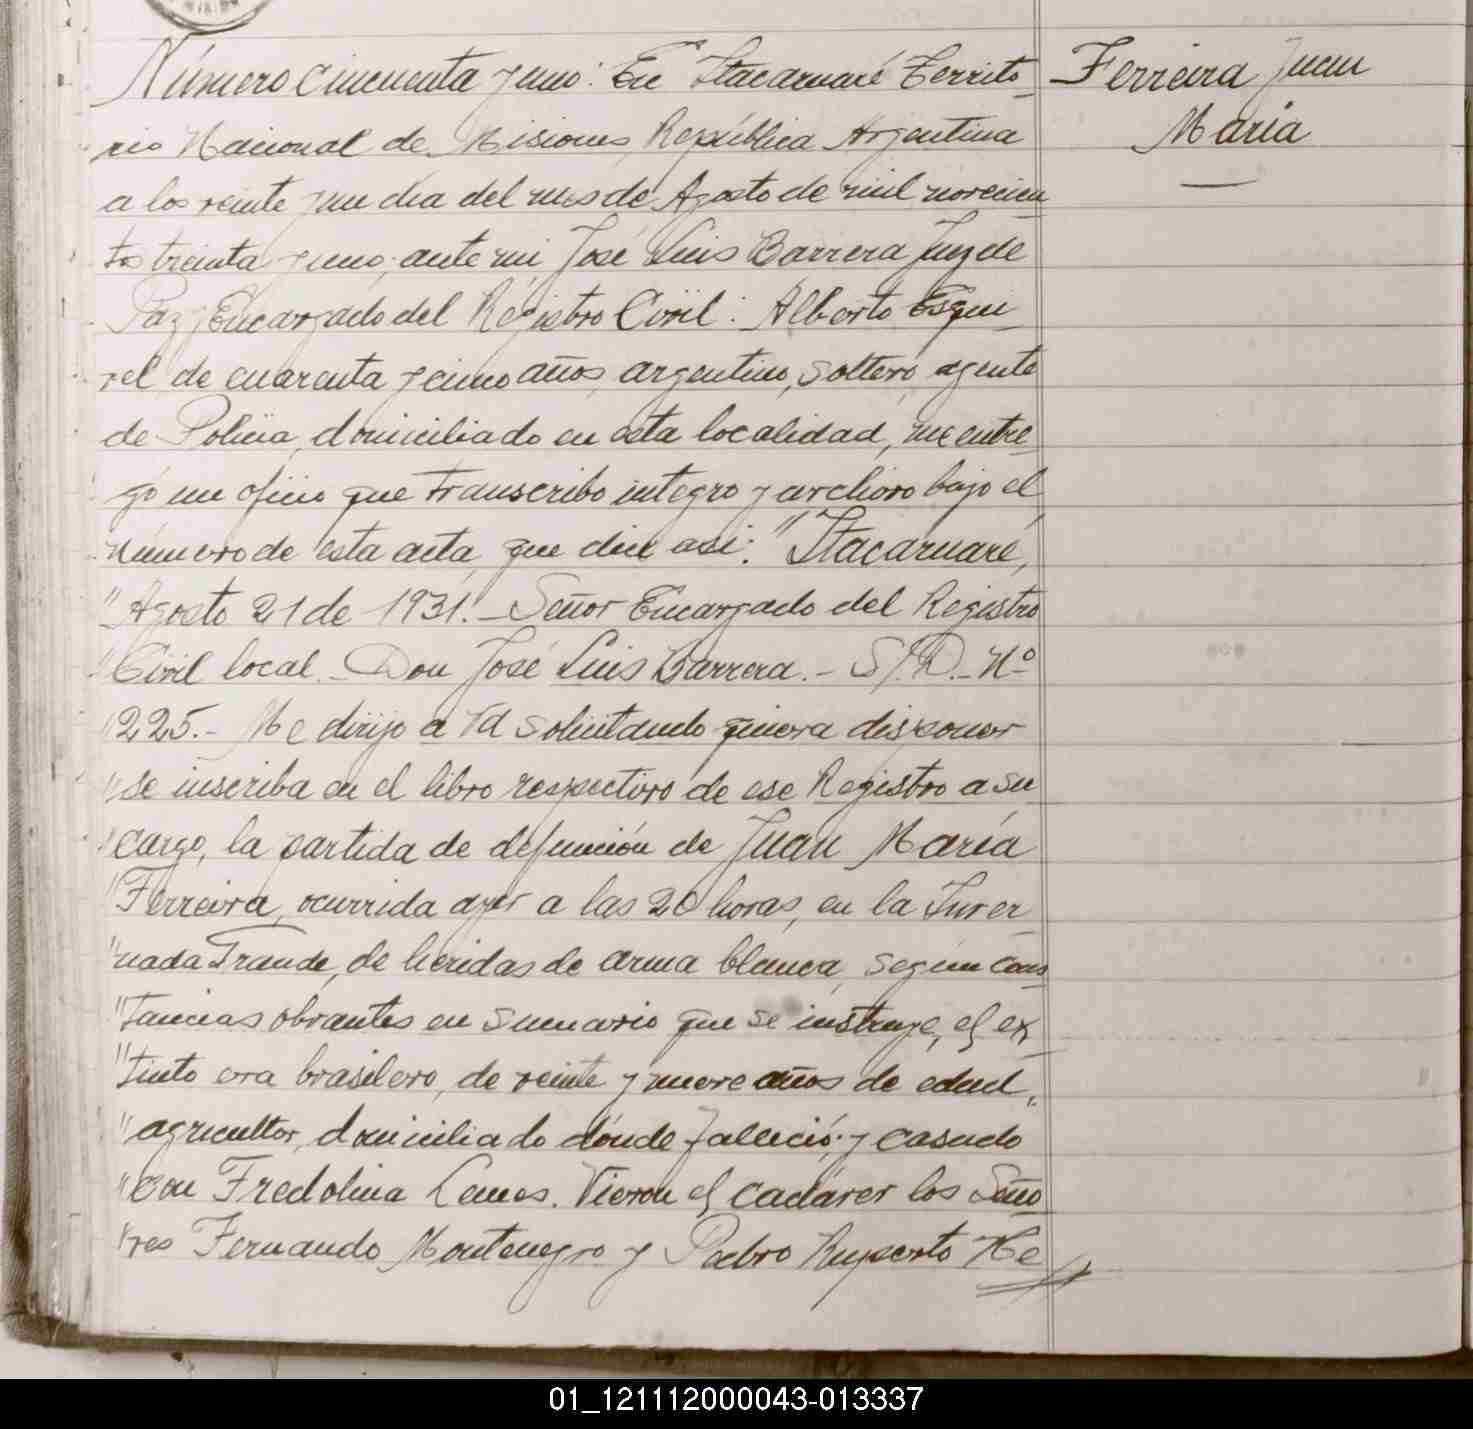 Número cincuenta y uno: En Itacaruaré Territo
rio Nacional de Misiones, República Argentina
a los veinte y un dia del mes de Agosto de mil novecien
tos treinta y uno, ante mi, José Luis Barrera Juez de
Paz y Encargado del Régistro Civil: Alberto Esqui
vel de cuarenta y cinco años, argentino, soltero, agente
de Policia, domiciliado en esta localidad, me entre
gó un oficio que transcribo integro y archivo bajo el
número de esta acta, que dice asi: "Itacaruaré,
"Agosto 21 de 1931.- Señor Encargado del Registro
"Civil local.- Don José Luis Barrera.- S/.D.- Nº
"225.- Me dirijo a Vd solicitando quiera disponer
"se inscriba en el libro respectivo de ese Registro a su
"cargo, la partida de defunción de Juan María
"Ferreira, ocurrida ayer a las 20 horas, en la Inver
"nada Grande, de heridas de arma blanca, según cons
"tancias obrantes en sumario que se instruye, el ex
"tinto era brasilero, de veinte y nueve años de edad,
"agricultor, domiciliado dónde falleció; y casado
"con Fredolina Lemos. Vieron el cadáver los Seño
"res Fernando Montenegro y Pedro Ruperto He
Ferreira Juan
María
01_121112000043-013337